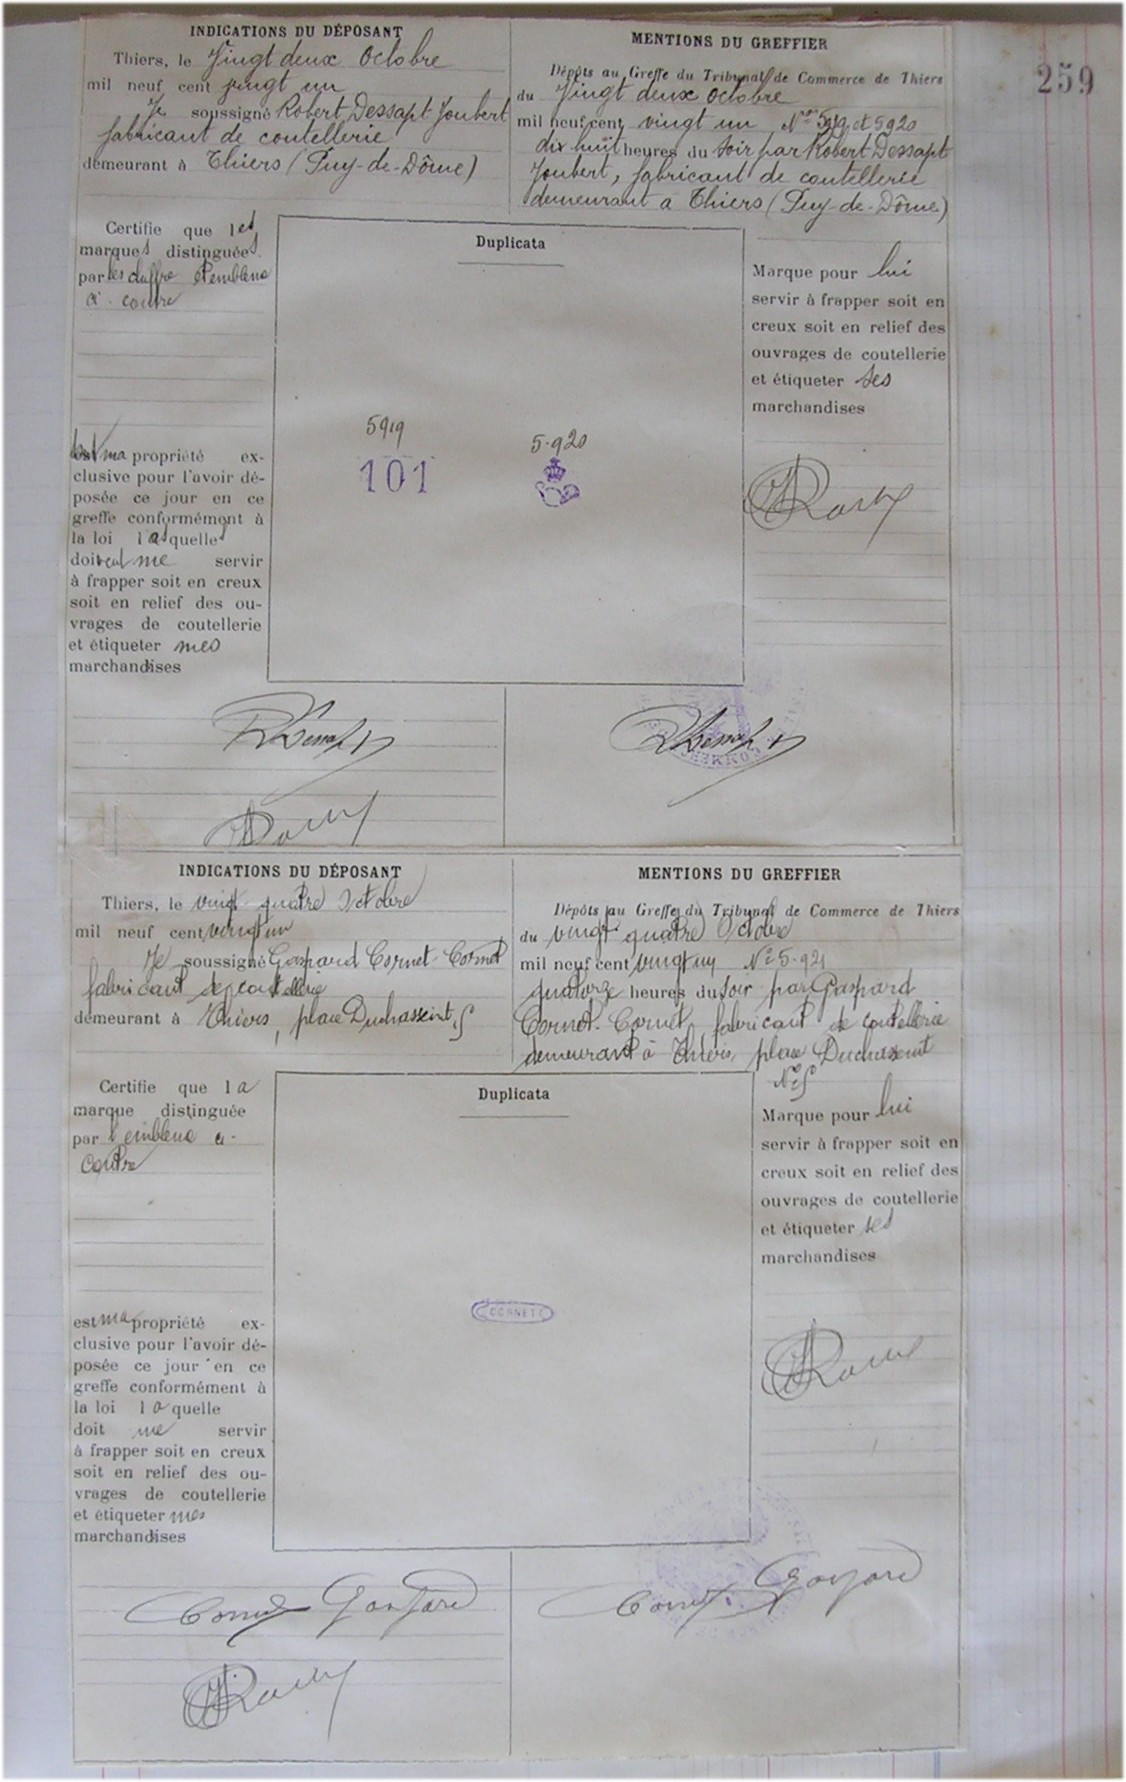 259
INDICATIONS DU DÉPOSANT
Thiers, le Vingt deux Octobre
mil neuf cent vingt un
Je soussigné Robert Dessapt Joubert
fabricant de coutellerie
demeurant à Thiers (Puy-de-Dôme)
MENTIONS DU GREFFIER
Dépôts au Greffe du Tribunal de Commerce de Thiers
du Vingt deux octobre
mil neuf cent vingt un Nos 5919 et 5920
dix huit heures du soir par Robert Dessapt
Joubert, fabricant de coutellerie
demeurant à Thiers (Puy-de-Dôme)
Certifie que les
marques distinguées
par les chiffre et emblème
ci-contre
sont ma propriété ex-
clusive pour l'avoir dé-
posée ce jour en ce
greffe conformément à
la loi lasquelles
doivent me servir
à frapper soit en creux
soit en relief des ou-
vrages de coutellerie
et étiqueter mes
marchandises
Duplicata
5919
101
5.920
Marque pour lui
servir à frapper soit en
creux soit en relief des
ouvrages de coutellerie
et étiqueter ses
marchandises
COMMERCE
INDICATIONS DU DÉPOSANT
Thiers, le vingt quatre Octobre
mil neuf cent vingt un
Je soussigné Gaspard Cornet-Cornet
fabricant de coutellerie
demeurant à Thiers, place Duchasseint, 5
MENTIONS DU GREFFIER
Dépôts au Greffe du Tribunal de Commerce de Thiers
du vingt quatre Octobre
mil neuf cent vingt un No 5.921
quatorze heures du soir par Gaspard
Cornet-Cornet, fabricant de coutellerie
demeurant à Thiers, place Duchasseint
No 5
Certifie que la
marque distinguée
par l'emblème ci-
contre
est ma propriété ex-
clusive pour l'avoir dé-
posée ce jour en ce
greffe conformément à
la loi laquelle
doit me servir
à frapper soit en creux
soit en relief des ou-
vrages de coutellerie
et étiqueter mes
marchandises
Duplicata
CORNET
Marque pour lui
servir à frapper soit en
creux soit en relief des
ouvrages de coutellerie
et étiqueter ses
marchandises
Cornet Gaspard
Cornet Gaspard